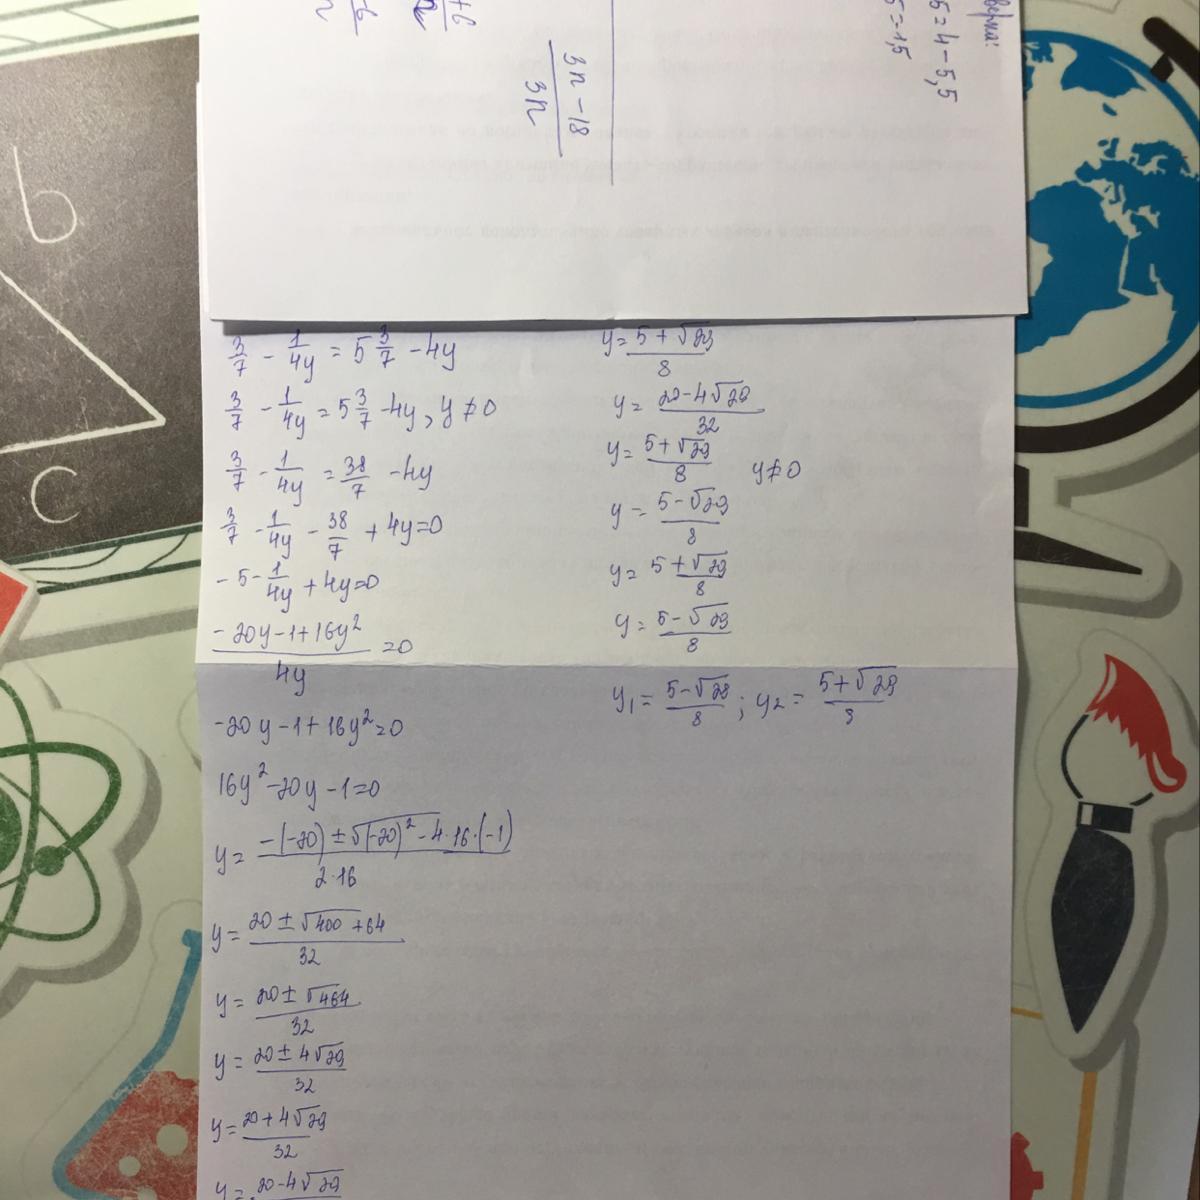 b
c
+6
-6
n
3n - 18
3n
5 = 4 - 5,5
5 = 1,5
3/7 - 1/4y = 5 3/7 - 4y
3/7 - 1/4y = 5 3/7 - 4y, y ≠ 0
3/7 - 1/4y = 38/7 - 4y
3/7 - 1/4y - 38/7 + 4y = 0
- 5 - 1/4y + 4y = 0
(- 20y - 1 + 16y²)/4y = 0
-20y - 1 + 16y² = 0
16y² - 20y - 1 = 0
y = (-(-20) ± √(-20)² - 4·16·(-1))/(2·16)
y = (20 ± √400 + 64)/32
y = (20 ± √464)/32
y = (20 ± 4√29)/32
y = (20 + 4√29)/32
y = 20 - 4√29
y = (5 + √29)/8
y = (20 - 4√29)/32
y = (5 + √29)/8 y ≠ 0
y = (5 - √29)/8
y = (5 + √29)/8
y = (5 - √29)/8
y₁ = (5 - √29)/8 ; y₂ = (5 + √29)/8